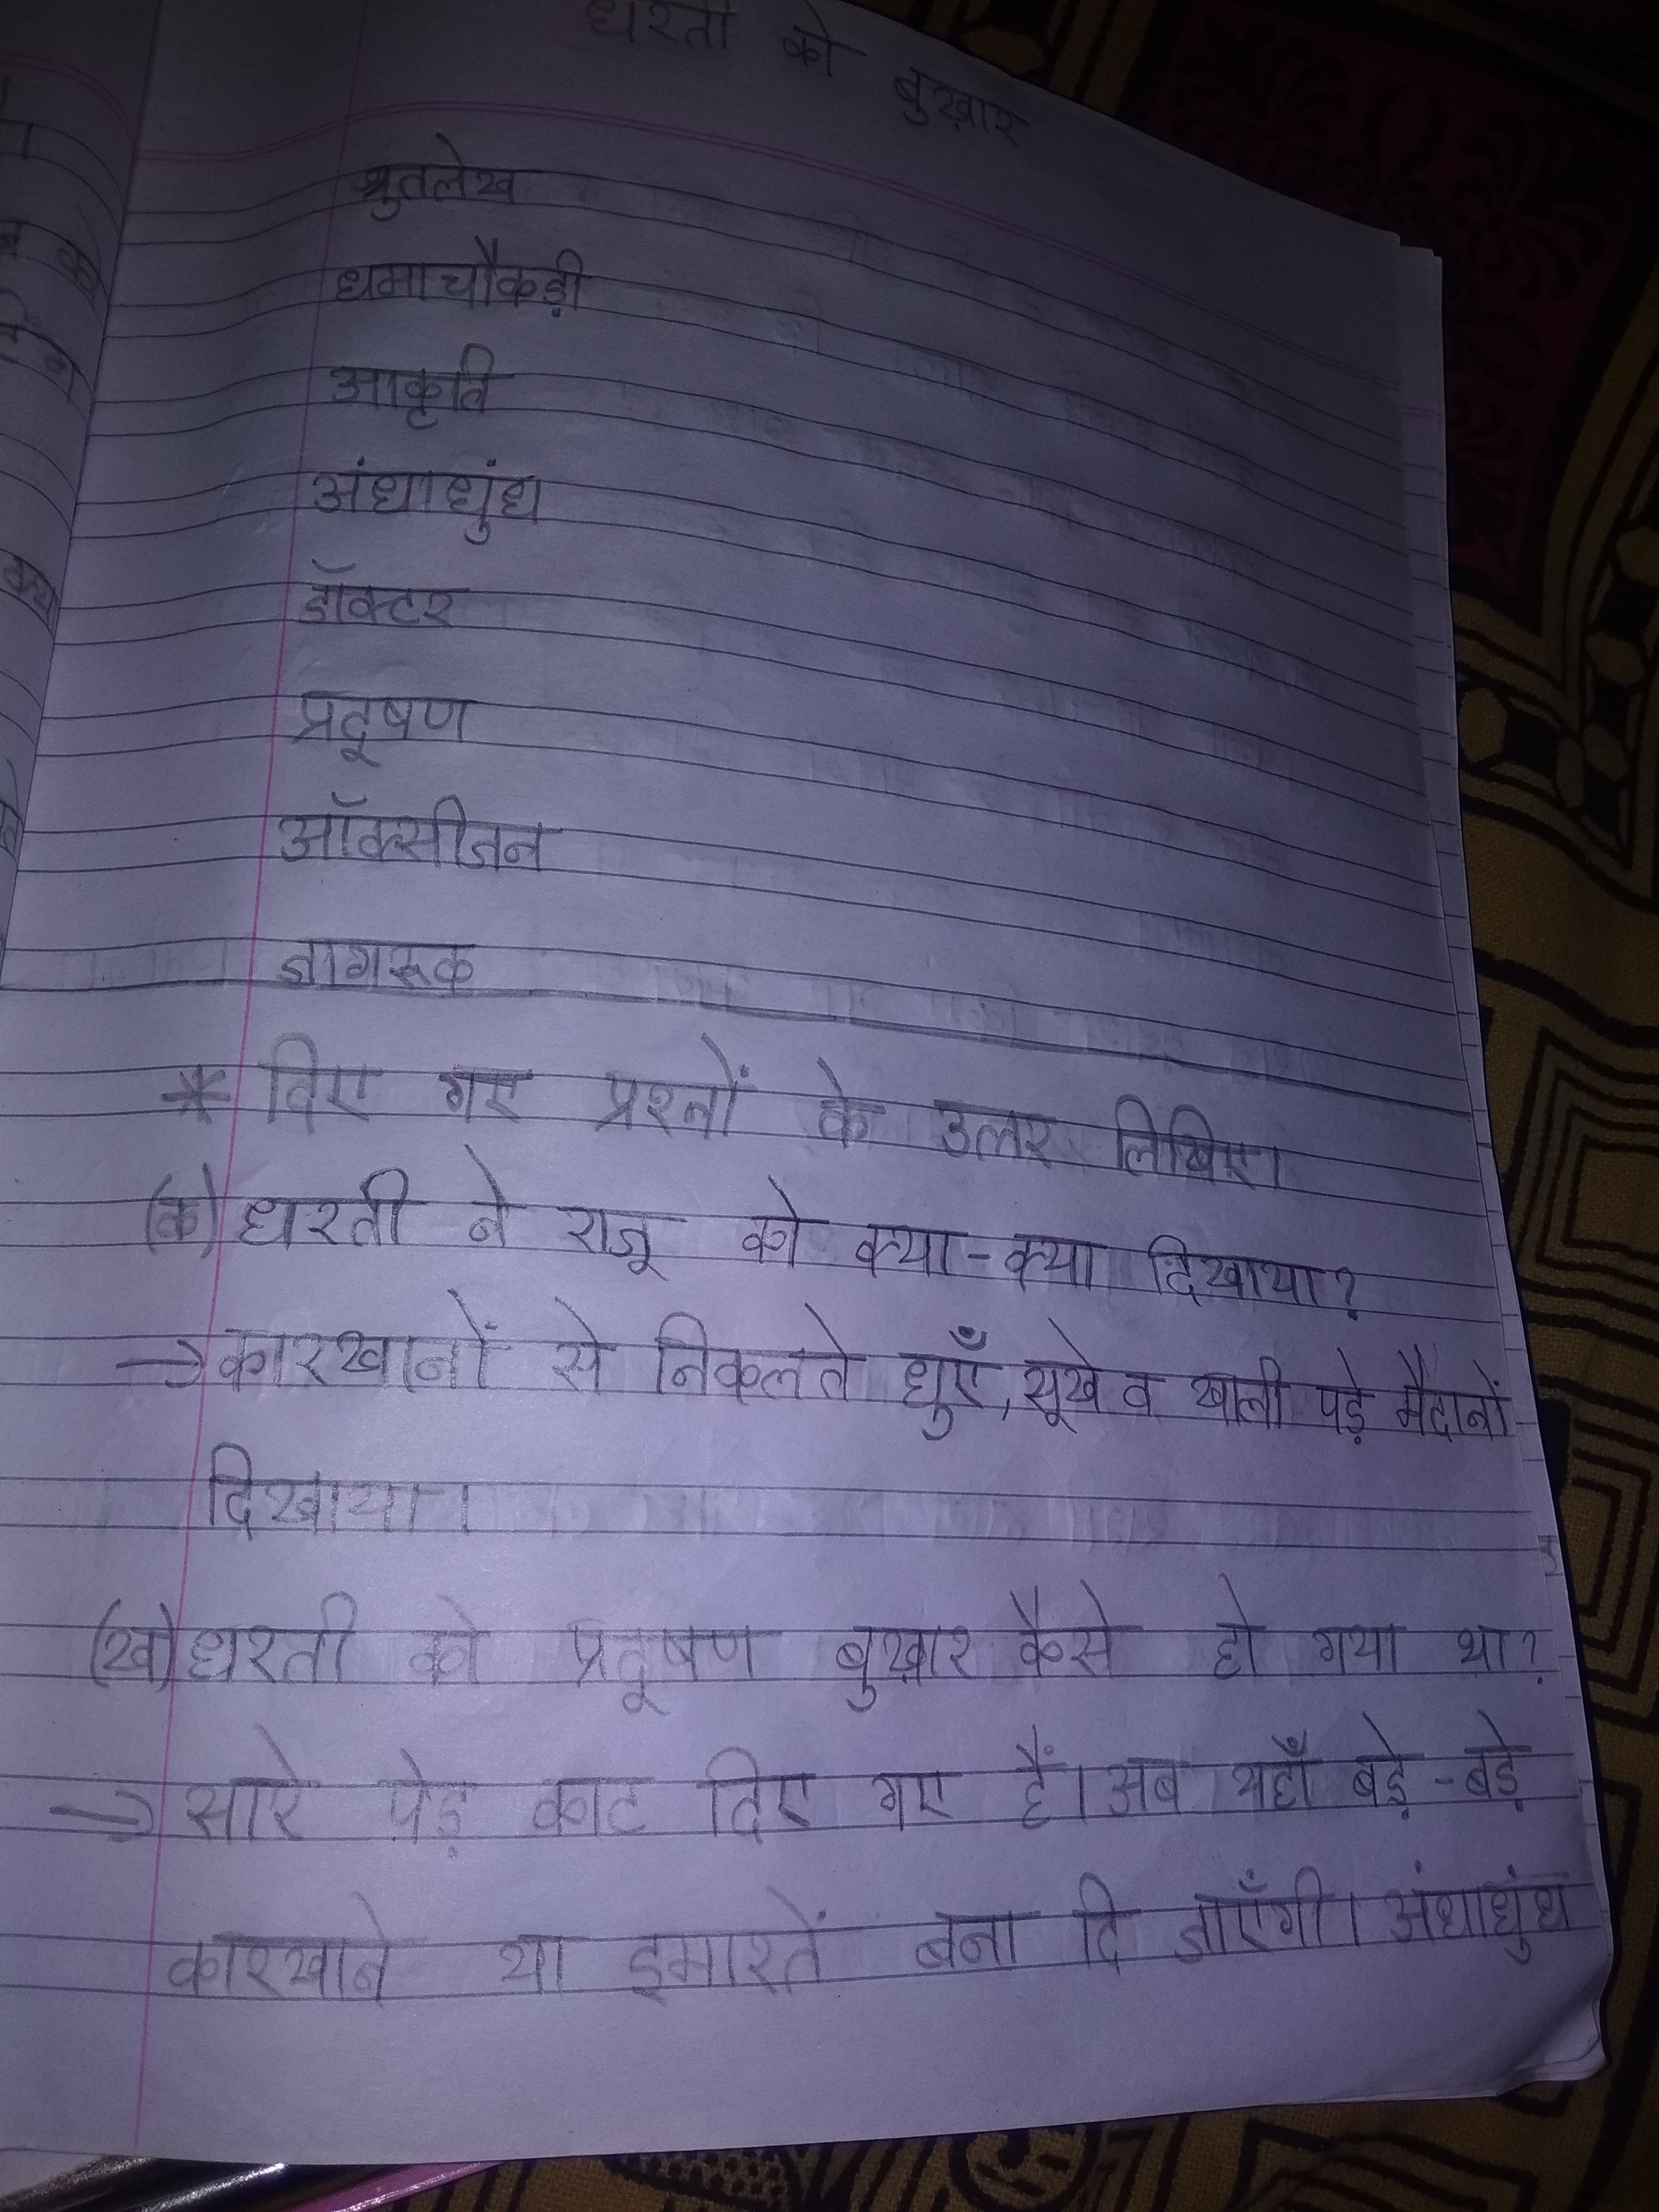 धरती को बुखार
श्रुतलेख
धमाचौकड़ी
आकृति
अंधाधुंध
डॉक्टर
प्रदूषण
ऑक्सीजन
जागरूक
* दिए गए प्रश्नों के उत्तर लिखिए।
(क) धरती ने राजू को क्या-क्या दिखाया?
→ कारखानों से निकलते धुएँ, सूखे व खाली पड़े मैदानों
दिखाया।
(ख) धरती को प्रदूषण बुखार कैसे हो गया था?
→ सारे पेड़ काट दिए गए हैं। अब यहाँ बड़े-बड़े
कारखाने या इमारतें बना दि जाएँगी। अंधाधुंध